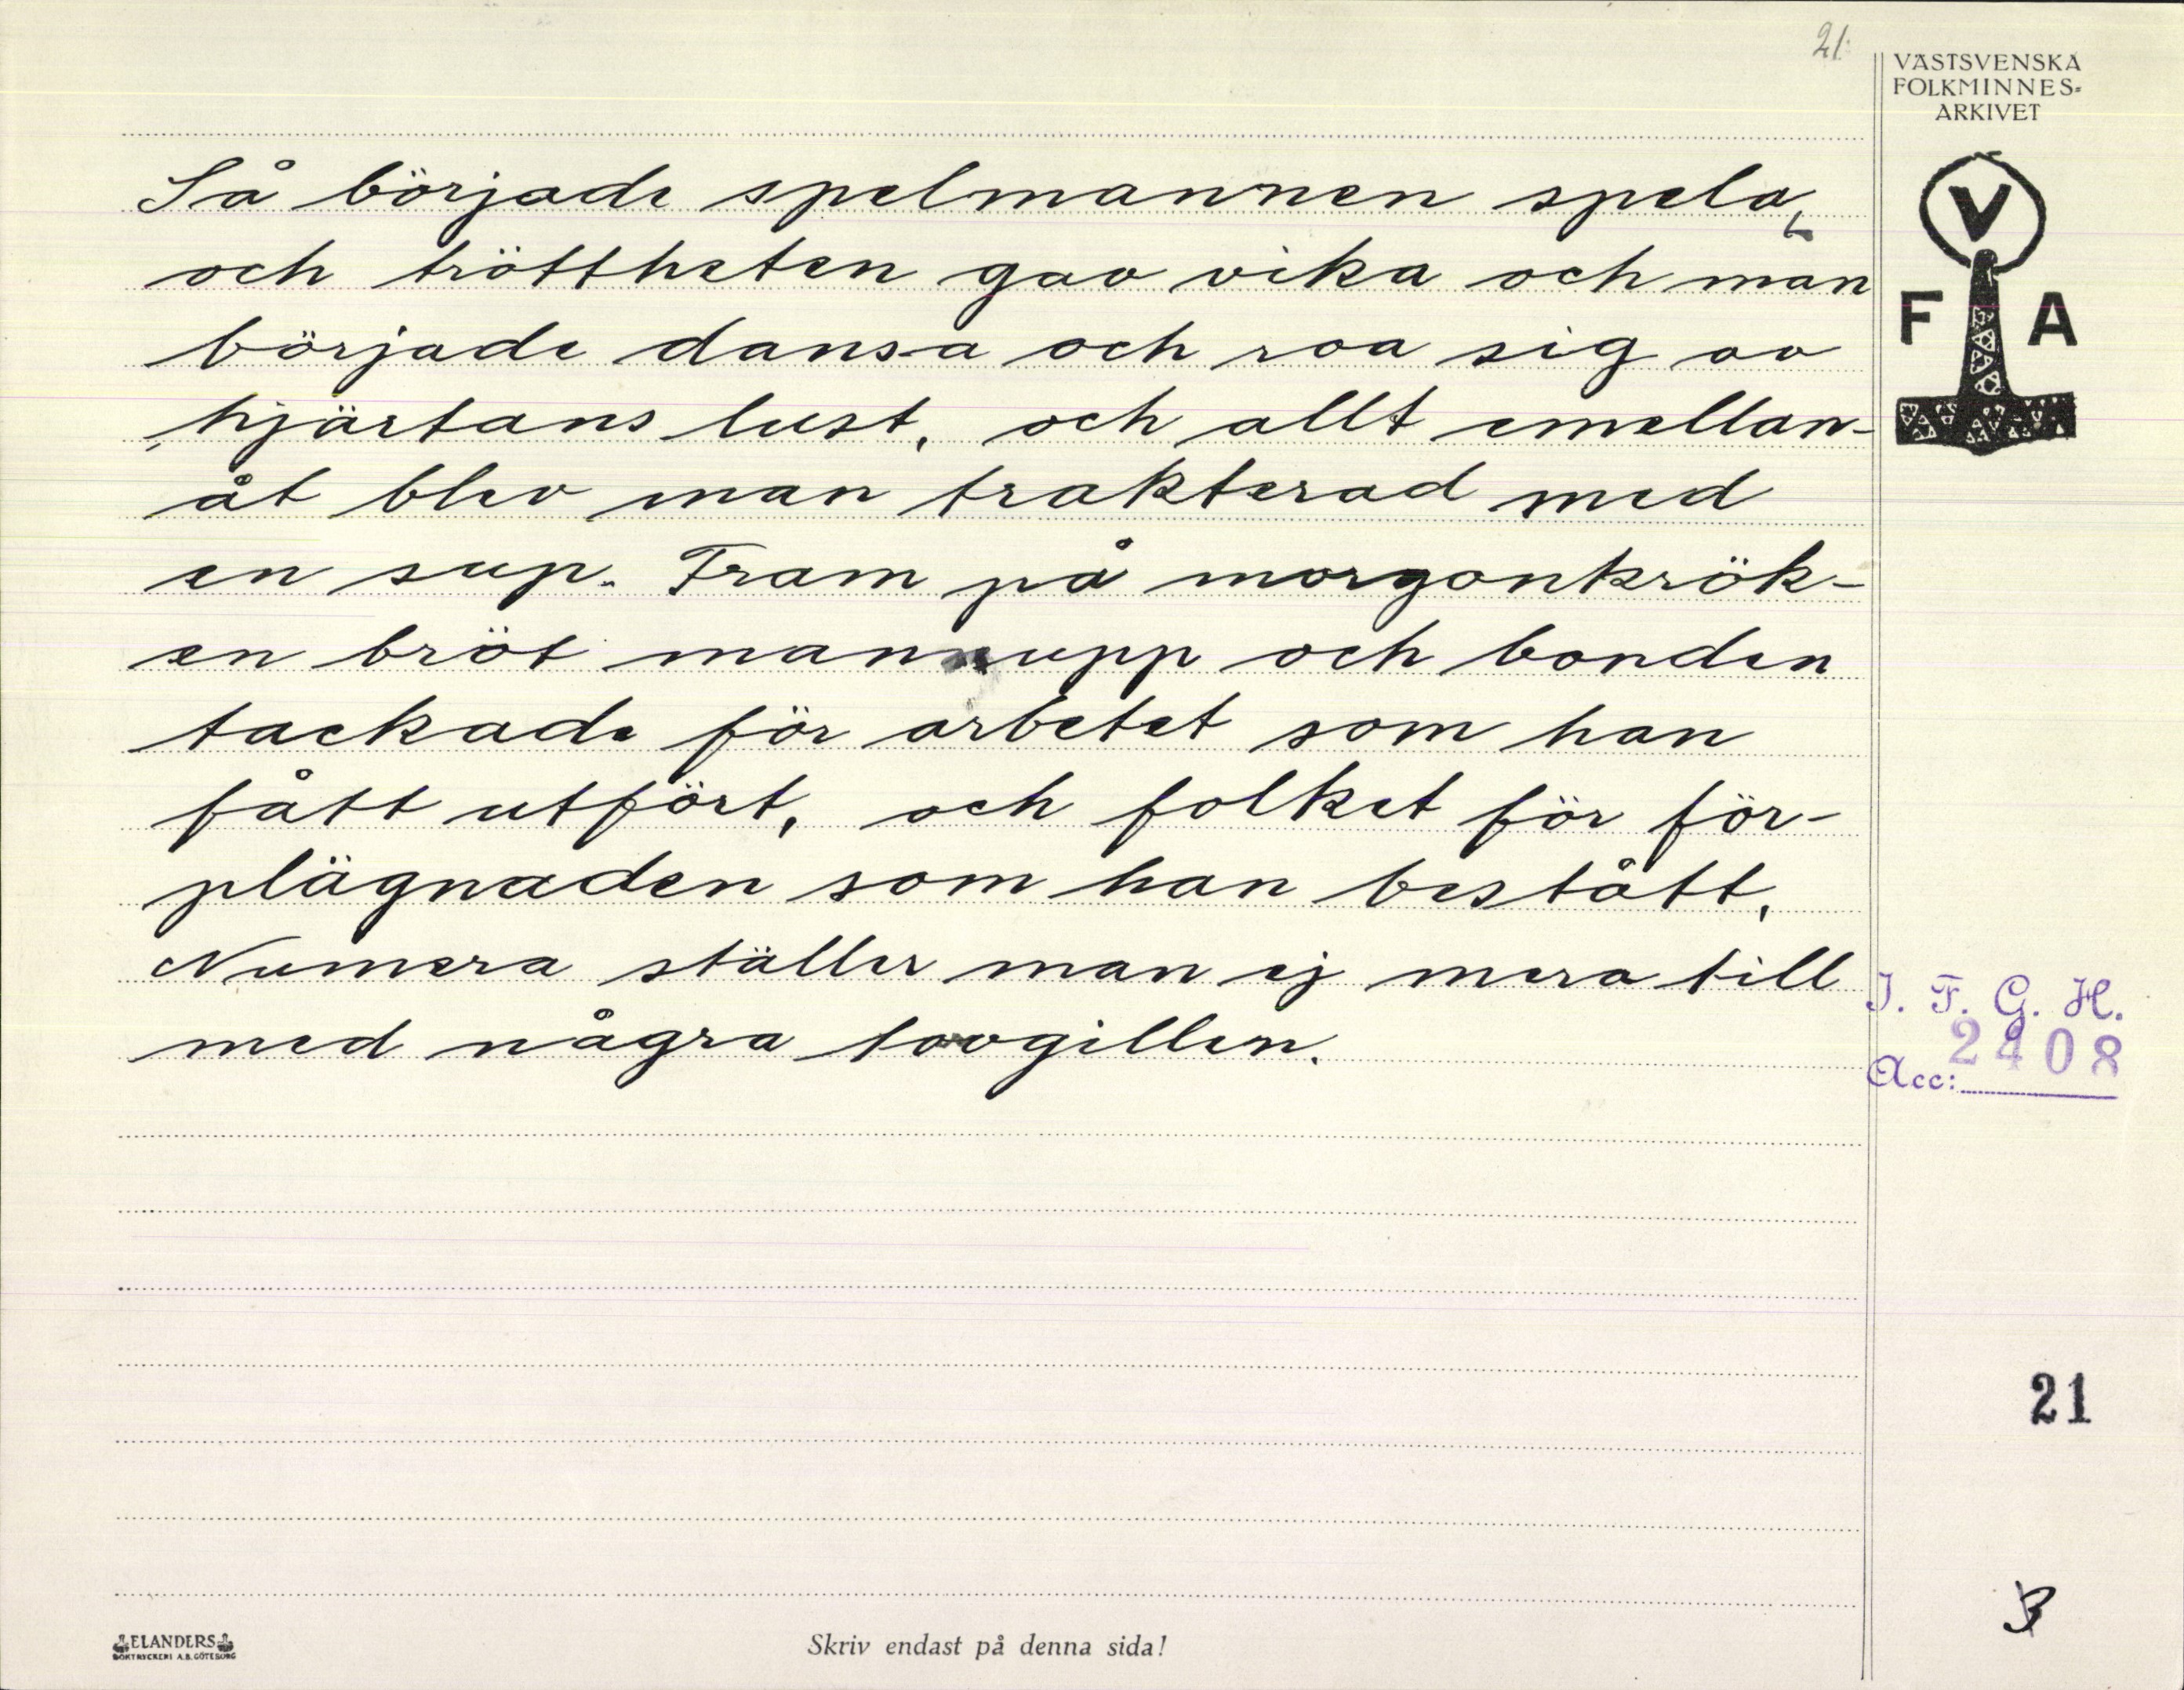 21.
VÄSTSVENSKA
FOLKMINNES-
ARKIVET
V
F A
Så började spelmannen spela,
och tröttheten gav vika och man
började dansa och roa sig av
hjärtans lust, och allt emellan-
åt blev man trakterad med
en sup. Fram på morgonkrök-
en bröt man upp och bonden
tackade för arbetet som han
fått utfört, och folket för för-
plägnaden som han bestått.
Numera ställer man ej mera till
med några tovgillen.
I. F. G. H.
2408
Acc:
21
3
ELANDERS
BOKTRYCKERI A.B. GÖTEBORG
Skriv endast på denna sida!